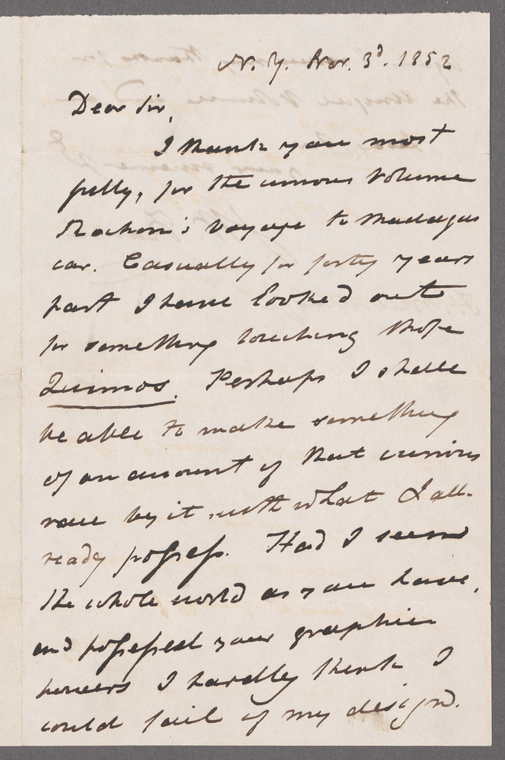 N. Y. Nov. 3d. 1852
Dear Sir,
I thank you most
fully, for the curious volume
Rochon's Voyage to Madagas
car. Casually for forty years
past I have looked out
for something touching those
Quimos. Perhaps I shall
be able to make something
of an account of that curious
race by it with what I al-
ready possess. Had I seen
the whole world as you have,
and possessed your graphic
powers I hardly think I
could fail of my design.